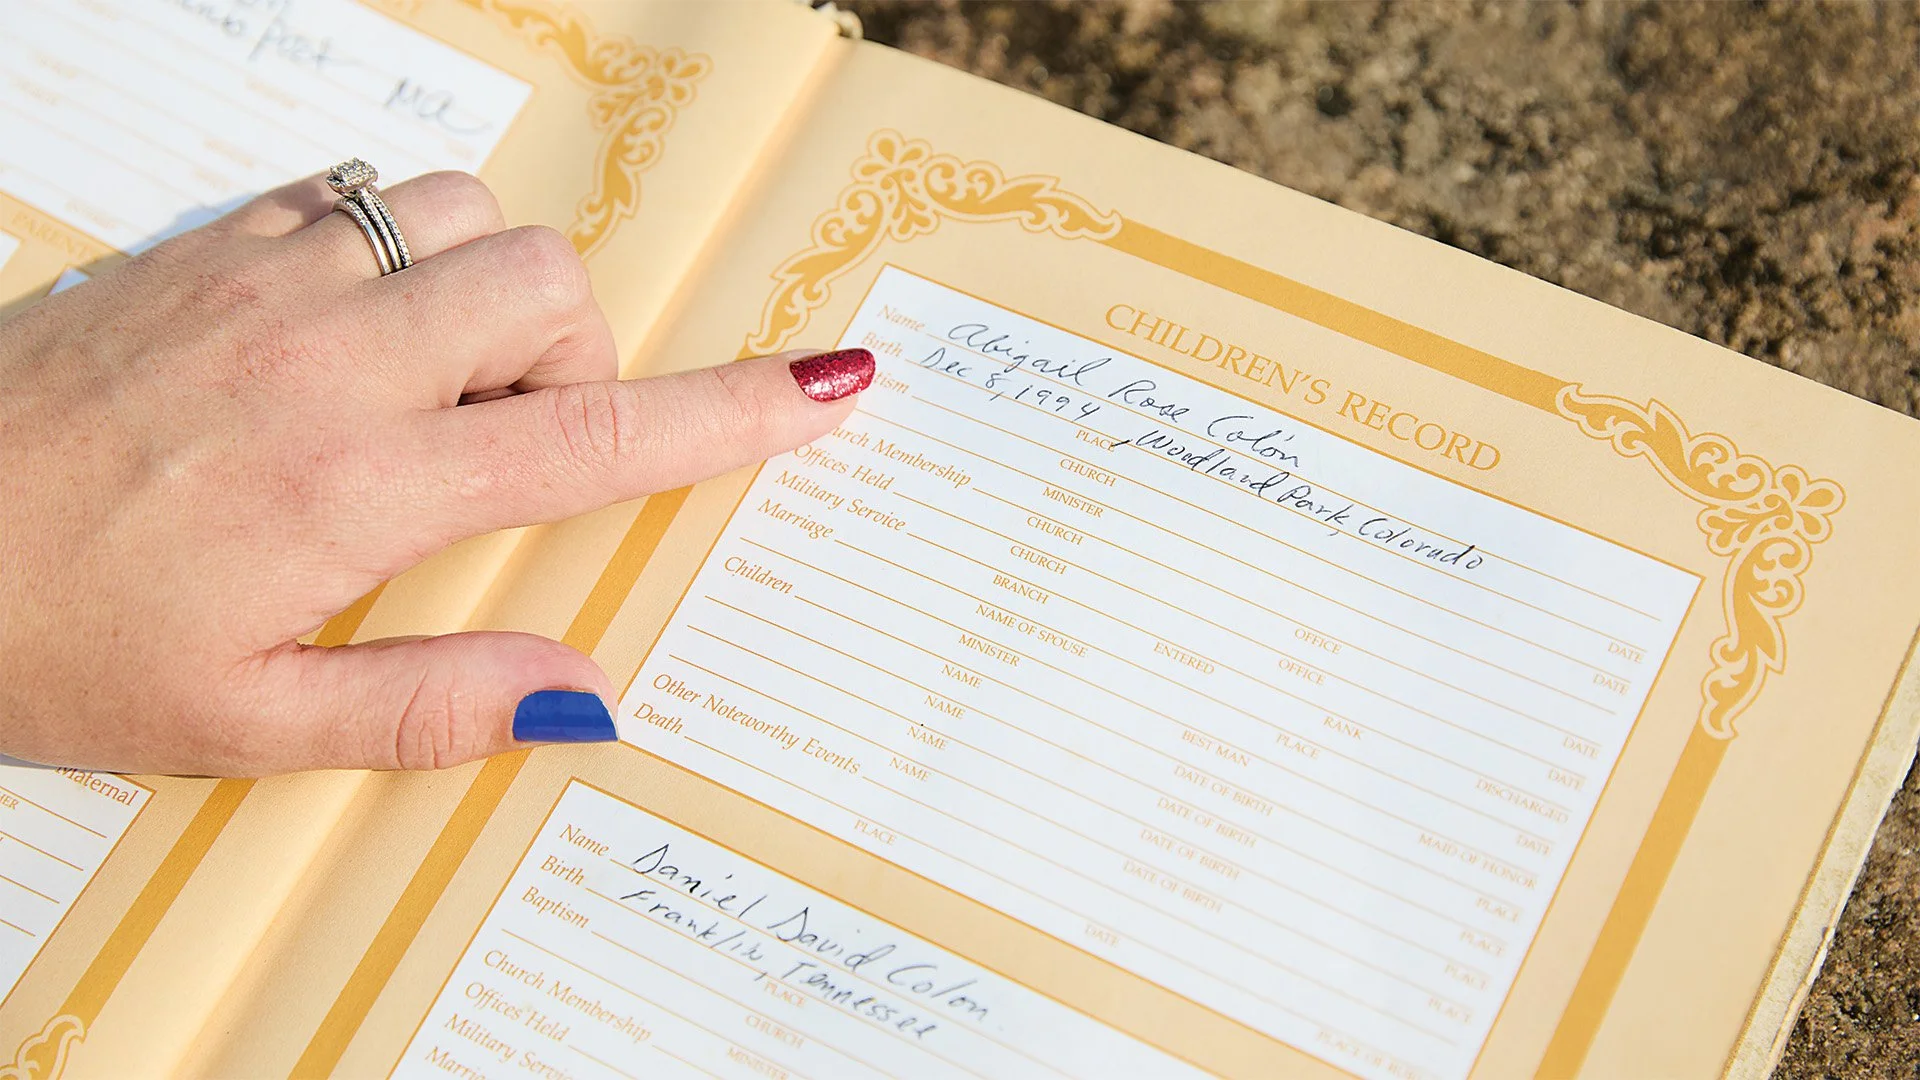 post MA
PARENT
Maternal
CHILDREN'S RECORD
Name Abigail Rose Colón
Birth Dec 8, 1994, Woodland Park, Colorado
PLACE
CHURCH
MINISTER
Church Membership
CHURCH OFFICE DATE
Offices Held
CHURCH OFFICE DATE
Military Service
BRANCH ENTERED RANK DATE
Marriage
NAME OF SPOUSE PLACE DATE
MINISTER BEST MAN DISCHARGED
Children
NAME DATE OF BIRTH MAID OF HONOR DATE
NAME DATE OF BIRTH PLACE
NAME DATE OF BIRTH PLACE
NAME DATE OF BIRTH PLACE
Other Noteworthy Events
PLACE
Death
PLACE DATE
Name Daniel David Colon
Birth Franklin, Tennessee
PLACE
Baptism
CHURCH
MINISTER
Church Membership
Offices Held
Military Service